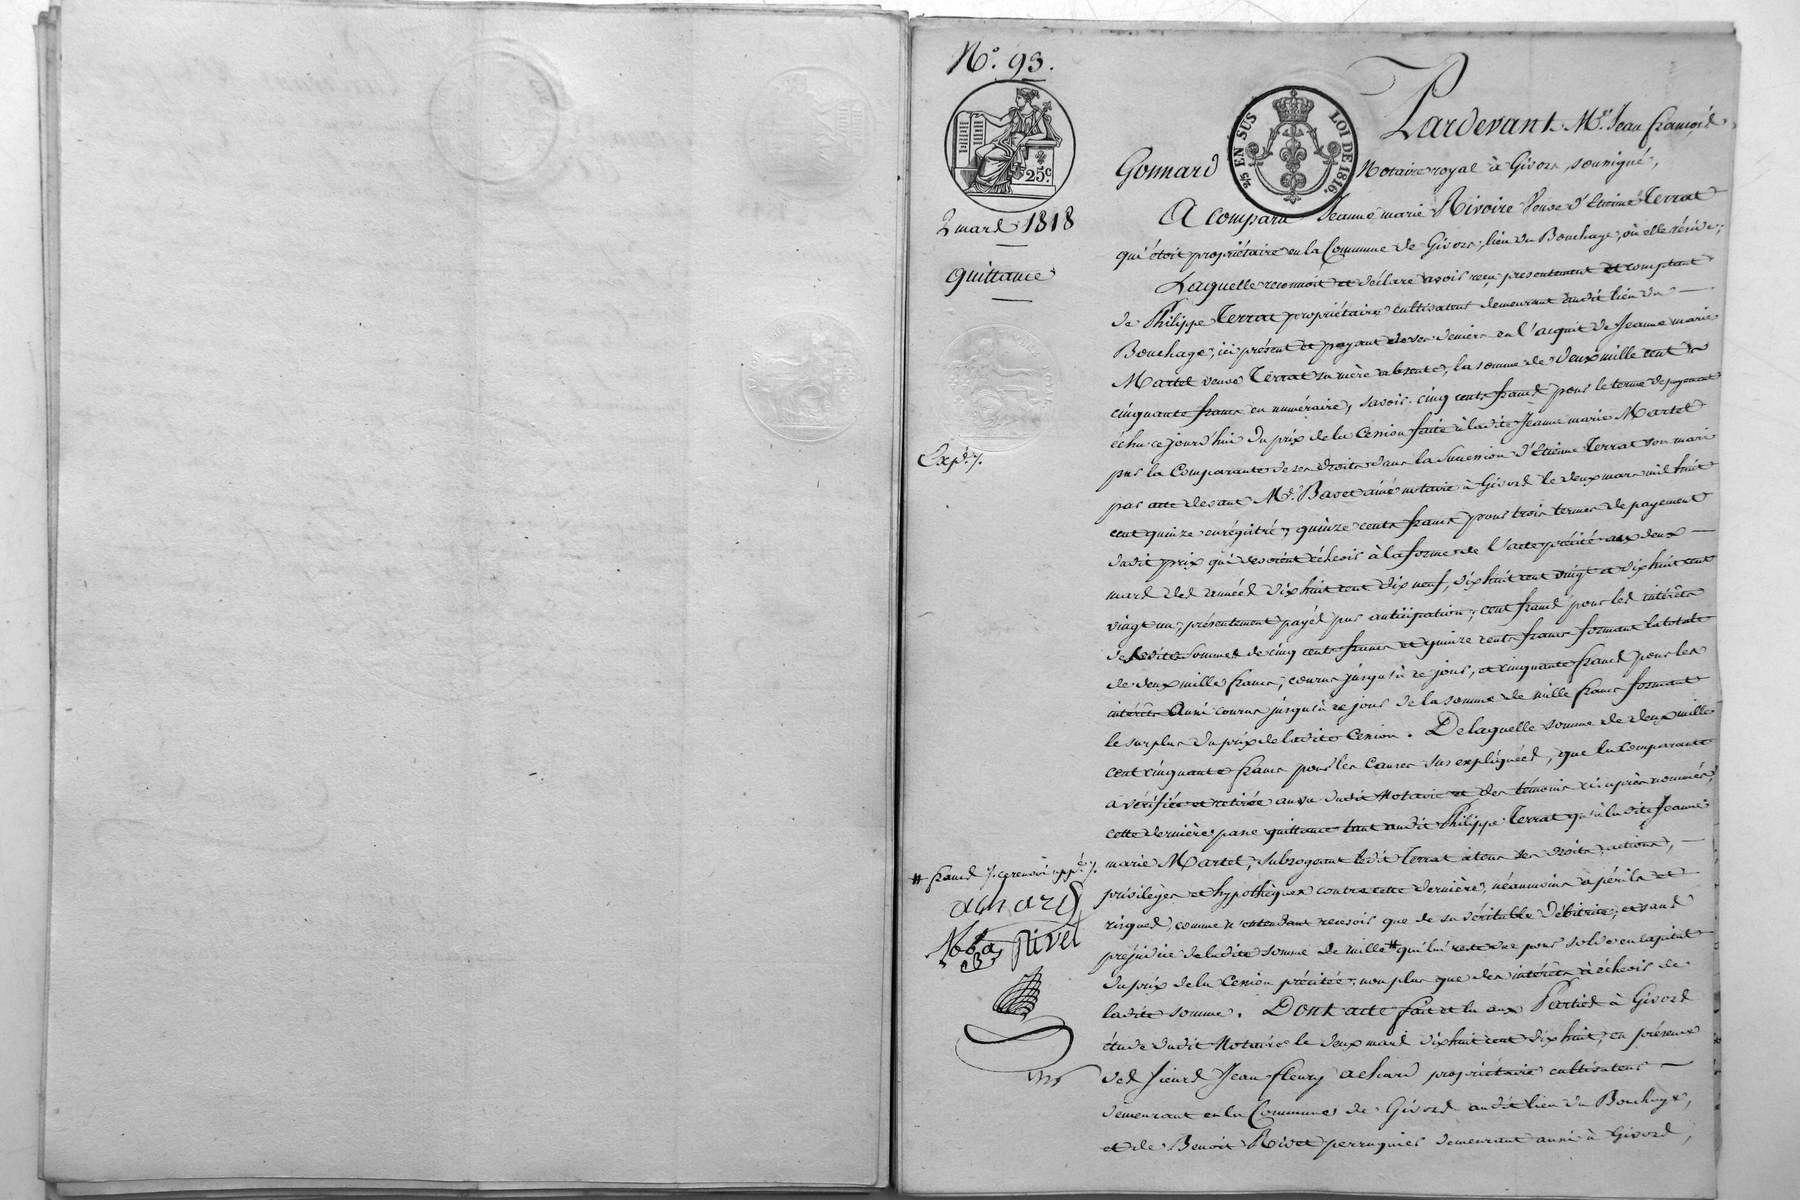 N.º 93.
25.c
2 mars 1818
Quittance
Exp.é /.
EN SUS
LOI DE 1816.
Pardevant M.e Jean François
Gonnard Notaire royal à Givors, soussigné,
A comparu Jeanne marie Rivoire Veuve d'Etienne Terrat
qui étoit propriétaire en la Commune de Givors, lieu du Bouchage, où elle réside;
Laquelle reconnoit et déclare avoir reçu présentement et comptant
de Philippe Terrat propriétaire cultivateur demeurant audit lieu du
Bouchage, ici présent et payant de ses deniers en l'acquit de Jeanne marie
Martel veuve Terrat sa mère absente, la somme de deux mille cent
cinquante francs en numéraire, savoir: cinq cents francs pour le terme de payement
échu ce jourd'hui du prix de la Cession faite à ladite Jeanne marie Martel
par la Comparante de ses droits dans la Succession d'Etienne Terrat son mari
par acte devant M.e Bavet aîné notaire à Givors le deux mars mil huit
cent quinze enrégistré; quinze cents francs pour trois termes de payement
dudit prix qui devoient échoir à la forme de l'acte précité aux deux
mars des années dix huit cent dix neuf, dix huit cent vingt et dix huit cent
vingt un, présentement payés par anticipation; cent francs pour les intérêts
desdites sommes de cinq cents francs et quinze cents francs formant la totale
de deux mille francs, courus jusqu'à ce jour, et cinquante francs pour les
intérêts aussi courus jusqu'à ce jour de la somme de mille francs formant
le surplus du prix de ladite Cession. De laquelle somme de deux mille
cent cinquante francs pour les Causes sus expliquées, que la comparante
a vérifiée et retirée au vu dudit Notaire et des témoins ci après nommés,
cette dernière passe quittance tant audit Philippe Terrat qu'à ladite Jeanne
marie Martel, subrogeant ledit Terrat à tous ses droits, actions,
privilèges et hypothèques contre cette dernière, néanmoins à périls et
risques, comme n'entendant recevoir que de sa véritable débitrice, et sans
préjudice de ladite somme de mille # qui lui reste due pour solde en capital
du prix de la Cession précitée, non plus que des intérêts à échoir de
ladite somme. Dont acte fait et lu aux Parties à Givors
étude dudit Notaire le deux mars dix huit cent dix huit, en présence
des sieurs Jean fleury achard propriétaire cultivateur
demeurant en la Commune de Givors audit lieu du Bouchage,
et de Benoit Rivet perruquier demeurant aussi à Givors,
# francs /. ce renvoi app.é /.
achard
Rivet